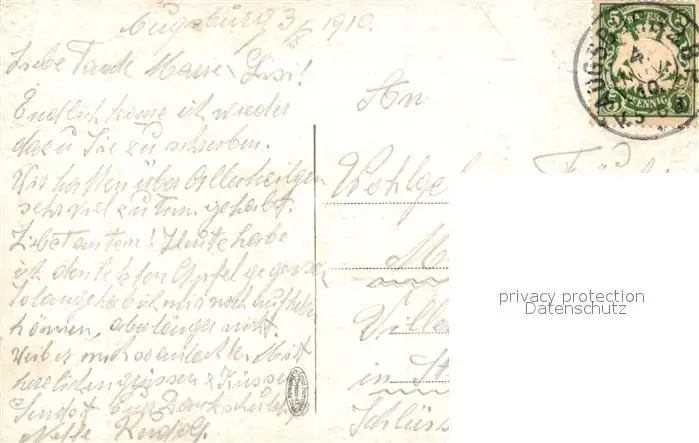 Augsburg 3/XI 1910.
Liebe Tante Marie, Lisi!
Endlich komme ich wieder
dazu Sie zu schreiben.
Wir hatten über Allerheiligen
sehr viel zu tun gehabt.
Liebe Tanten! Heute habe
ich den letzten Apfel gegessen
solang hab ich mir noch aufheben
können, aber länger nicht.
Mit
herzlichen Grüssen & Küssen
Sendet Euer
Neffe Rudolf.
An
Wohlgeb
Ville
in St
Schlüss
BAYERN
PFENNIG
AUGSB
privacy protection
Datenschutz